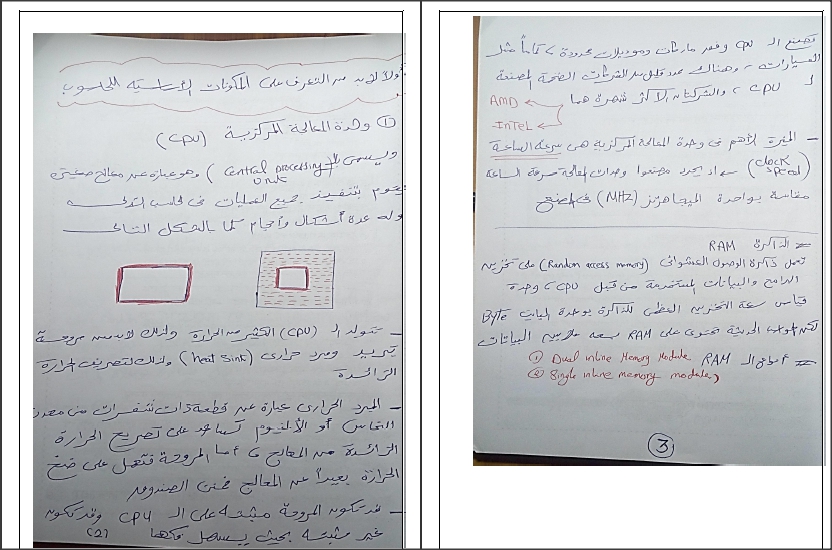 أولاً لابد من التعرف على المكونات الأساسية للحاسوب
① وحدة المعالجة المركزية (CPU)
ويسمى بال (Central processing Unit) وهو عبارة عن معالج
يقوم بتنفيذ جميع العمليات فى الحاسب
وله عدة أشكال وأحجام كما بالشكل التالى
- تتولد الـ (CPU) الكثير من الحرارة ولذلك لابد من مروحة
تبريد ومبرد حرارى (heat sink) وذلك لتصريف الحرارة
الزائدة
- المبرد الحرارى عبارة عن قطعة ذات شفرات من معدن
النحاس أو الألمنيوم تساعد على تصريح الحرارة
الزائدة من المعالج أما المروحة فتعمل على ضخ
الحرارة بعيداً عن المعالج ضمن الصندوق
- قد تكون المروحة مثبتة على الـ CPU وقد تكون
غير مثبتة بحيث يسهل فكها (2)
تصنع الـ CPU وفق ماركات وموديلات محدودة تماماً مثل
السيارات، وهناك عدد قليل من الشركات الضخمة المصنعة
لـ CPU، والشركتان الأكثر شهرة هما
AMD
INTEL
- الميزة الأهم فى وحدة المعالجة المركزية هى سرعة الساعة
(clock speed) يحدد مصنعوا وحدات المعالجة سرعة الساعة
مقاسة بواحدة الميجاهرتز (MHz)
= الذاكرة RAM
تعمل ذاكرة الوصول العشوائى (Random access memory) على تخزين
البرامج والبيانات المستخدمة من قبل CPU، وحدة
قياس سعة التخزين العظمى للذاكرة بوحدة البايت Byte
الحديثة تحتوى على RAM بسعة ملايين البايتات
= أنواع الـ RAM ① Dual inline Memory Module
② Single inline memory module
③